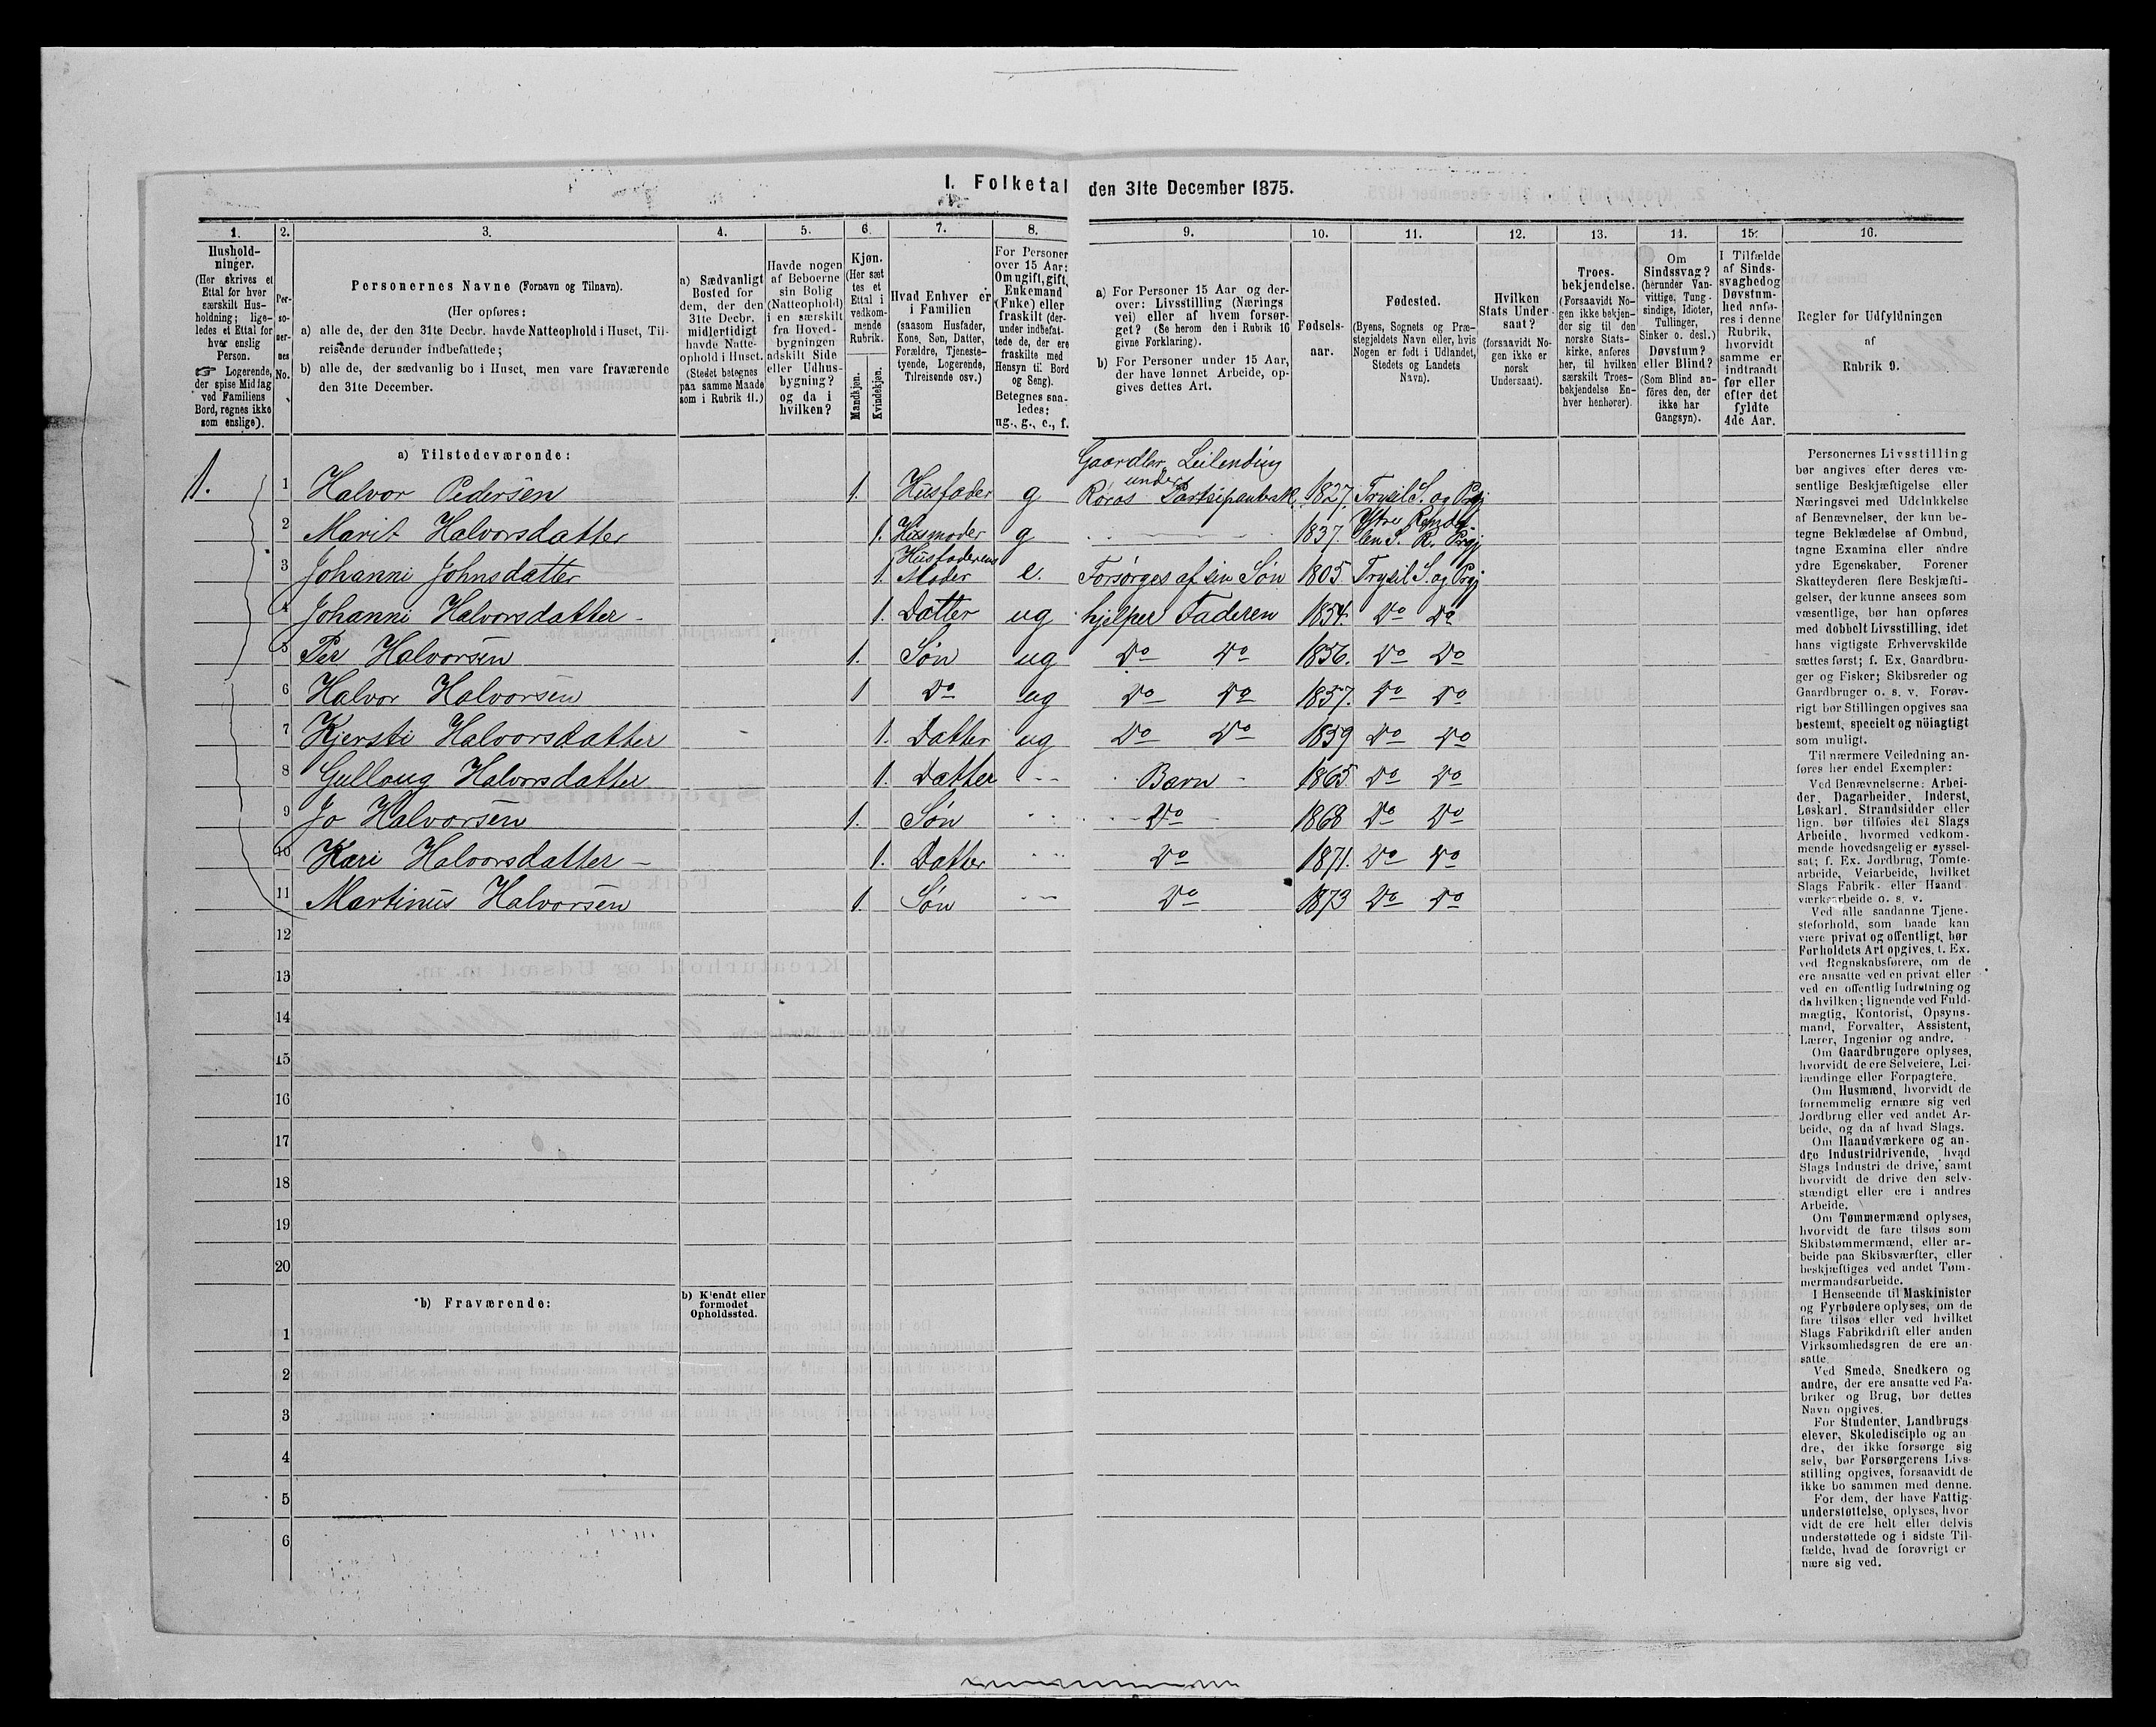 I. Folketal den 31te December 1875.
1. 2. 3. 4. 5. 6. 7. 8. 9. 10. 11. 12. 13. 14. 15. 16.
Hushold-
ninger.
(Her skrives et
Ettal for hver
særskilt Hus-
holdning; lige-
ledes et Ettal for
hver enslig
Person.
☞ Logerende,
der spise Middag
ved Familiens
Bord, regnes ikke
som enslige).
Per-
so-
ner-
nes
No.
Personernes Navne (Fornavn og Tilnavn).
(Her opføres:
a) alle de, der den 31te Decbr. havde Natteophold i Huset, Til-
reisende derunder indbefattede;
b) alle de, der sædvanlig bo i Huset, men vare fraværende
den 31te December.
a) Sædvanligt
Bosted for
dem, der den
31te Decbr.
midlertidigt
havde Natte-
ophold i Huset.
(Stedet betegnes
paa samme Maade
som i Rubrik 11.)
Havde nogen
af Beboerne
sin Bolig
(Natteophold)
i en særskilt
fra Hoved-
bygningen
adskilt Side
eller Udhus-
bygning?
og da i
hvilken?
Kjøn.
(Her sæt
tes et
Ettal i
vedkom-
mende
Rubrik.
Mandkjøn.
Kvindekjøn.
Hvad Enhver er
i Familien
(saasom Husfader,
Kone, Søn, Datter,
Forældre, Tjeneste-
tyende, Logerende,
Tilreisende osv.)
For Personer
over 15 Aar:
Om ugift, gift,
Enkemand
(Enke) eller
fraskilt (der-
under indbefat-
tede de, der ere
fraskilte med
Hensyn til Bord
og Seng).
Betegnes saa-
ledes:
ug., g., e., f.
a) For Personer 15 Aar og der-
over: Livsstilling (Nærings
vei) eller af hvem forsør-
get? (Se herom den i Rubrik 16
givne Forklaring).
b) For Personer under 15 Aar,
der have lønnet Arbeide, op-
gives dettes Art.
Fødsels-
aar.
Fødested.
(Byens, Sognets og Præ-
stegjeldets Navn eller, hvis
Nogen er født i Udlandet,
Stedets og Landets
Navn).
Hvilken
Stats Under
saat?
(forsaavidt No-
gen ikke er
norsk
Undersaat).
Troes-
bekjendelse.
(Forsaavidt No-
gen ikke bekjen-
der sig til den
norske Stats-
kirke, anføres
her, til hvilken
særskilt Troes-
bekjendelse En-
hver henhører).
Om
Sindssvag?
(herunder Van-
vittige, Tung-
sindige, Idioter,
Tullinger,
Sinker o. desl.)
Døvstum?
eller Blind?
(Som Blind an-
føres den, der
ikke har
Gangsyn).
I Tilfælde
af Sinds-
svaghed og
Døvstum-
hed anfø-
res i denne
Rubrik,
hvorvidt
samme er
indtraadt
før eller
efter det
fyldte
4de Aar.
Regler for Udfyldningen
af
Rubrik 9.
a) Tilstedeværende:
Gaardbr. Leilending
under
1. 1 Halvor Pedersen 1. Husfader g Røros Partisipantsk. 1827. Trysil S. og Prgj
2 Marit Halvorsdatter 1. Husmoder g 1837. Ytre Rendal-
len S. R. Prgj
Husfaderens
3 Johanni Johnsdatter 1. Moder e. Forsørges af sin Søn 1805 Trysil S. og Prgj
4 Johanni Halvorsdatter 1. Datter ug hjelper Faderen 1854. Do Do
5 Per Halvorsen 1. Søn ug Do Do 1856. Do Do
6 Halvor Halvorsen 1 Do ug Do Do 1857. Do Do
7 Kjersti Halvorsdatter 1. Datter ug Do Do 1859 Do Do
8 Gulloug Halvorsdatter 1. Datter Barn 1865 Do Do
9 Jo Halvorsen 1. Søn Do 1868 Do Do
10 Kari Halvorsdatter 1. Datter Do 1871. Do Do
11 Martinus Halvorsen 1. Søn Do 1873 Do Do
12
13
14
15
16
17
18
19
20
b) Fraværende:
b) Kjendt eller
formodet
Opholdssted.
1
2
3
4
5
6
Personernes Livsstilling
bør angives efter deres væ-
sentlige Beskjæftigelse eller
Næringsvei med Udelukkelse
af Benævnelser, der kun be-
tegne Beklædelse af Ombud,
tagne Examina eller andre
ydre Egenskaber. Forener
Skatteyderen flere Beskjæfti-
gelser, der kunne ansees som
væsentlige, bør han opføres
med dobbelt Livsstilling, idet
hans vigtigste Erhvervskilde
sættes først; f. Ex. Gaardbru-
ger og Fisker; Skibsreder og
Gaardbruger o. s. v. Forøv-
rigt bør Stillingen opgives saa
bestemt, specielt og nöiagtigt
som muligt.
Til nærmere Veiledning an-
føres her endel Exempler:
Ved Benævnelserne: Arbei-
der, Dagarbeider, Inderst,
Løskarl, Strandsidder eller
lign. bør tilføies det Slags
Arbeide, hvormed vedkom-
mende hovedsagelig er syssel-
sat; f. Ex. Jordbrug, Tomte-
arbeide, Veiarbeide, hvilket
Slags Fabrik- eller Haand
værksarbeide o. s. v.
Ved alle saadanne Tjene-
steforhold, som baade kan
være privat og offentligt, bør
Forholdets Art opgives, f. Ex.
ved Regnskabsførere, om de
ere ansatte ved en privat eller
ved en offentlig Indretning og
da hvilken; lignende ved Fuld-
mægtig, Kontorist, Opsyns-
mand, Forvalter, Assistent,
Lærer, Ingeniør og andre.
Om Gaardbrugere oplyses,
hvorvidt de ere Selveiere, Lei-
lændinge eller Forpagtere.
Om Husmænd, hvorvidt de
fornemmelig ernære sig ved
Jordbrug eller ved andet Ar-
beide, og da af hvad Slags.
Om Haandværkere og an-
dre Industridrivende, hvad
Slags Industri de drive, samt
hvorvidt de drive den selv-
stændigt eller ere i andres
Arbeide.
Om Tømmermænd oplyses,
hvorvidt de fare tilsøs som
Skibstømmermænd, eller ar-
beide paa Skibsværfter, eller
beskjæftiges ved andet Tøm-
mermandsarbeide.
I Henseende til Maskinister
og Fyrbødere oplyses, om de
fare tilsøs eller ved hvilket
Slags Fabrikdrift eller anden
Virksomhedsgren de ere an-
satte.
Ved Smede, Snedkere og
andre, der ere ansatte ved Fa-
briker og Brug, bør dettes
Navn opgives.
For Studenter, Landbrugs
elever, Skoledisciple og an
dre, der ikke forsørge sig
selv, bør Forsørgerens Livs-
stilling opgives, forsaavidt de
ikke bo sammen med denne.
For dem, der have Fattig-
understøttelse, oplyses, hvor
vidt de ere helt eller delvis
understøttede og i sidste Til-
fælde, hvad de forøvrigt er
nære sig ved.